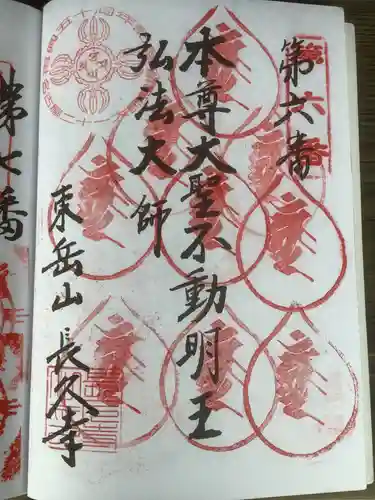 第六番
第六番
本尊大聖不動明王
弘法大師
東岳山 長久寺
第七番